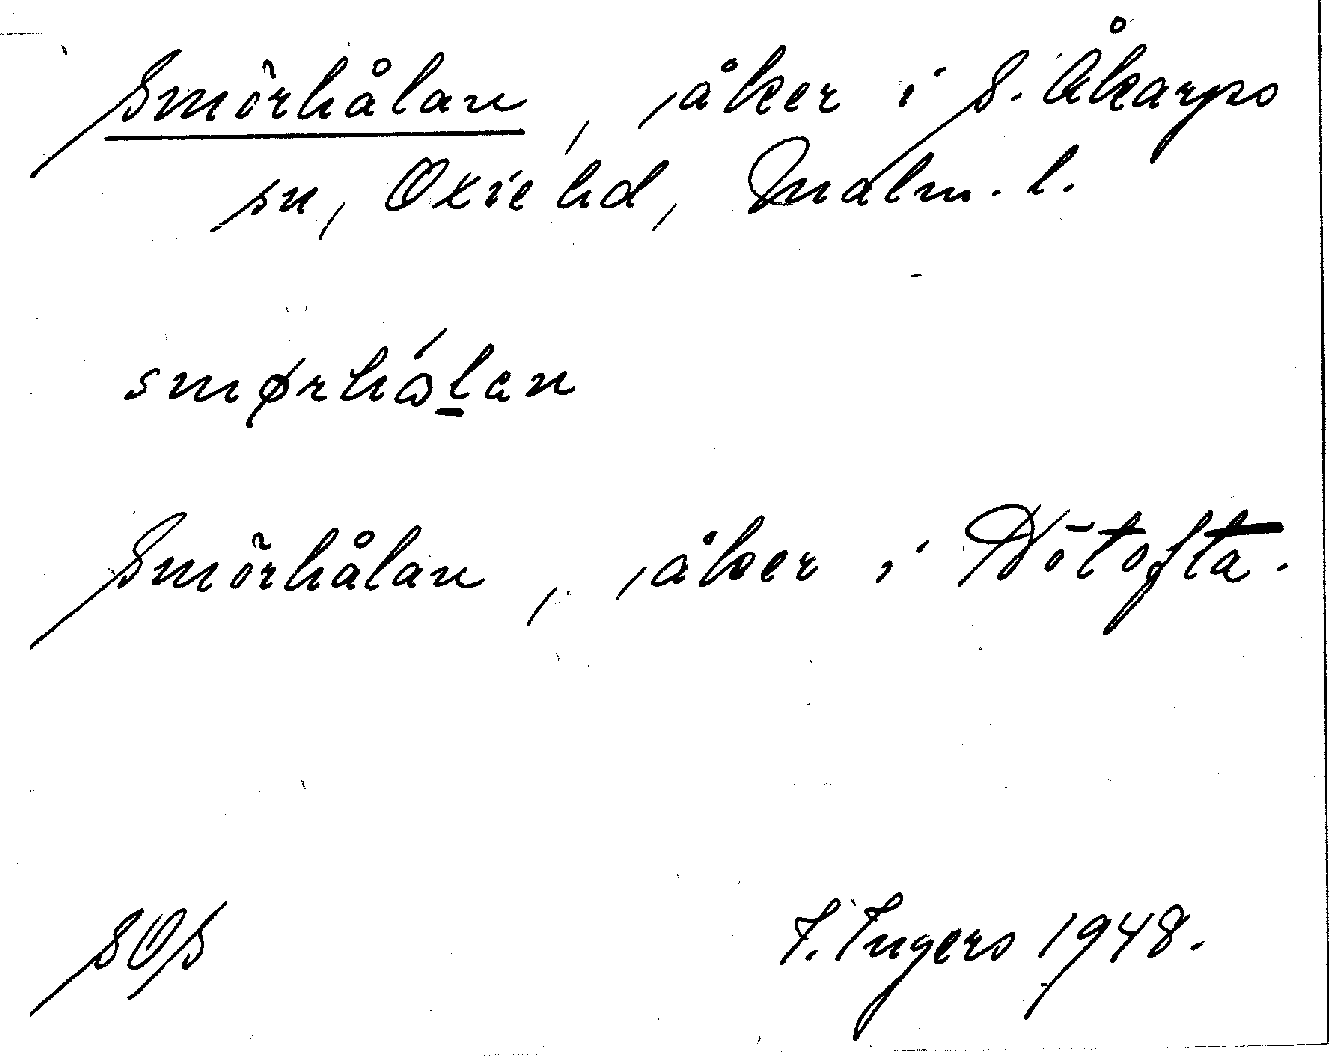 Smörhålan, åker i S. Åkarps
sn, Oxie hd, Malm. l.
smørhålan
Smörhålan, åker i Nötofta.
SOS
I. Ingers 1948.